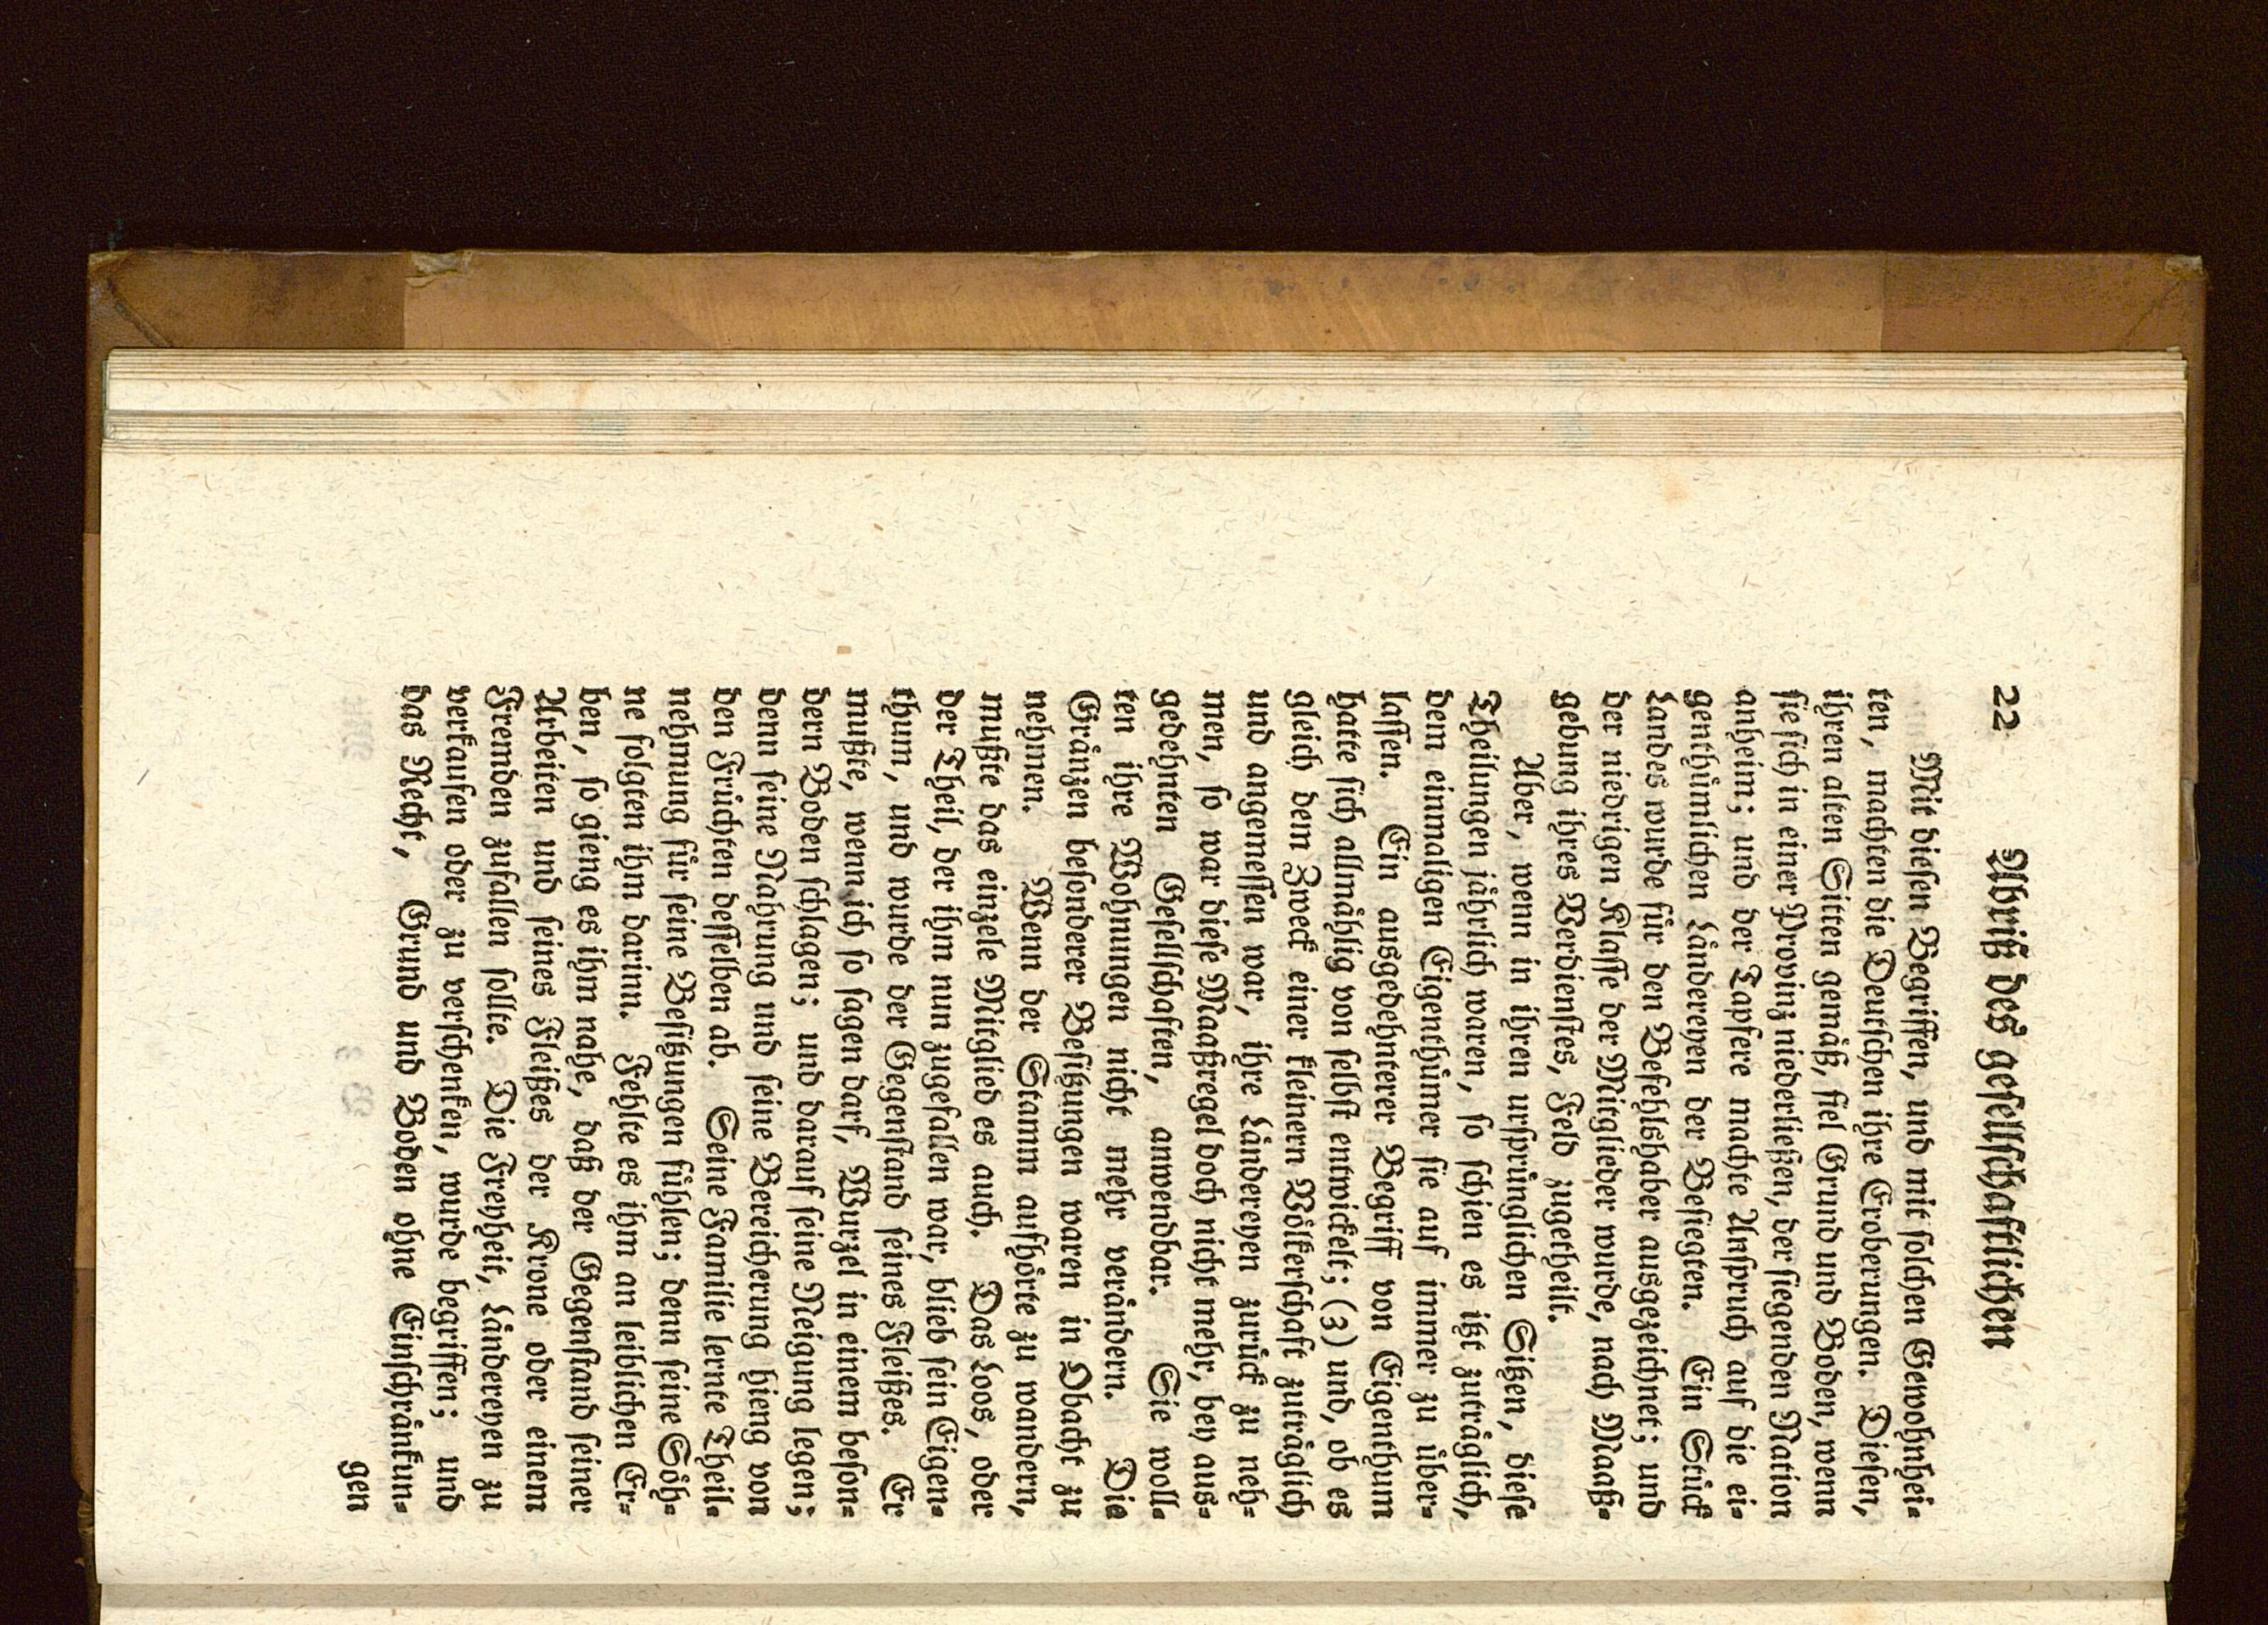 22 Abriß des geſellſchaftlichen
Mit dieſen Begriffen, und mit ſolchen Gewohnhei-
ten, machten die Deutſchen ihre Eroberungen. Dieſen,
ihren alten Sitten gemäß, fiel Grund und Boden, wenn
ſie ſich in einer Provinz niederließen, der ſiegenden Nation
anheim; und der Tapfere machte Anſpruch auf die ei-
genthümlichen Ländereyen der Beſiegten. Ein Stück
Landes wurde für den Befehlshaber ausgezeichnet; und
der niedrigen Klaſſe der Mitglieder wurde, nach Maaß-
gebung ihres Verdienſtes, Feld zugetheilt.
Aber, wenn in ihren urſprünglichen Sitzen, dieſe
Theilungen jährlich waren, ſo ſchien es itzt zuträglich,
dem einmaligen Eigenthümer ſie auf immer zu über-
laſſen. Ein ausgedehnterer Begriff von Eigenthum
hatte ſich allmählig von ſelbſt entwickelt; (3) und, ob es
gleich dem Zweck einer kleinern Völkerſchaft zuträglich
und angemeſſen war, ihre Ländereyen zurück zu neh-
men, ſo war dieſe Maaßregel doch nicht mehr, bey aus-
gedehnten Geſellſchaften, anwendbar. Sie woll-
ten ihre Wohnungen nicht mehr verändern. Die
Gränzen beſonderer Beſitzungen waren in Obacht zu
nehmen. Wenn der Stamm aufhörte zu wandern,
mußte das einzele Mitglied es auch. Das Loos, oder
der Theil, der ihm nun zugefallen war, blieb ſein Eigen-
thum, und wurde der Gegenſtand ſeines Fleißes. Er
mußte, wenn ich ſo ſagen darf, Wurzel in einem beſon-
dern Boden ſchlagen; und darauf ſeine Neigung legen;
denn ſeine Nahrung und ſeine Bereicherung hieng von
den Früchten deſſelben ab. Seine Familie lernte Theil-
nehmung für ſeine Beſitzungen fühlen; denn ſeine Söh-
ne folgten ihm darinn. Fehlte es ihm an leiblichen Er-
ben, ſo gieng es ihm nahe, daß der Gegenſtand ſeiner
Arbeiten und ſeines Fleißes der Krone oder einem
Fremden zufallen ſollte. Die Freyheit, Ländereyen zu
verkaufen oder zu verſchenken, wurde begriffen; und
das Recht, Grund und Boden ohne Einſchränkun-
gen